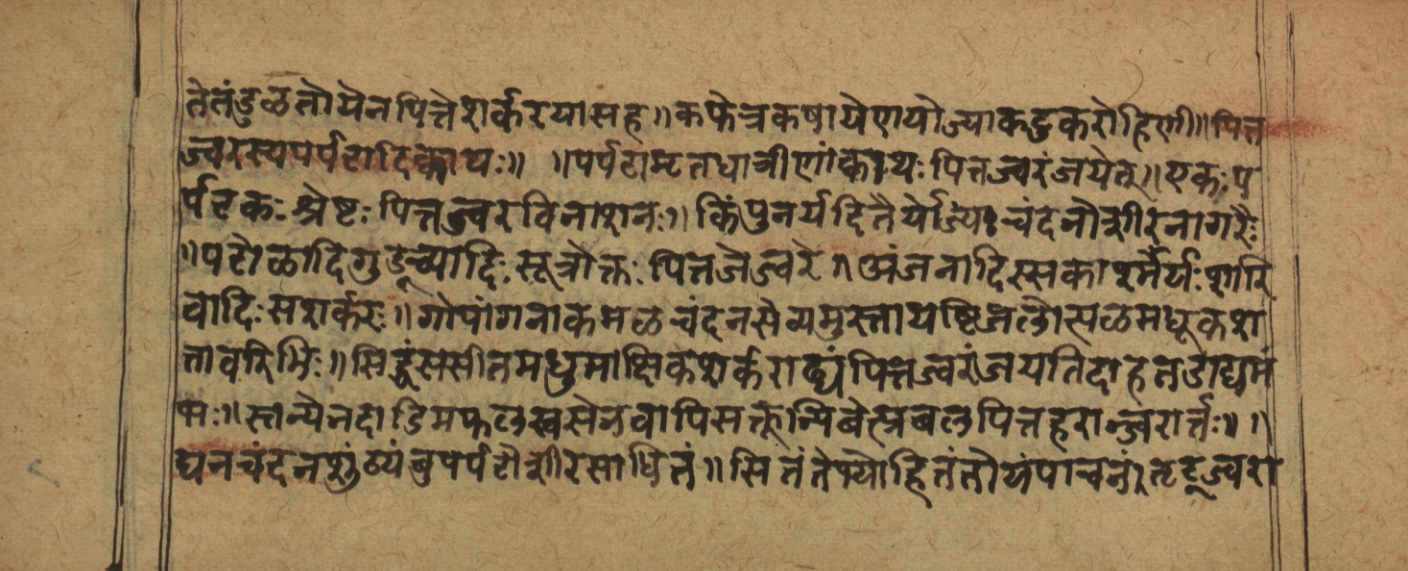 तेतंडुळतोयेनपित्तेशर्करयासह॥कफेत्रकषायेणयोज्याकटुकरोहिणी॥पित्त
ज्वरस्यपर्पटादिक्वाथः॥ ॥पर्पटामृतधात्रीणांक्वाथःपित्तज्वरंजयेत्॥एकःप
र्पटकःश्रेष्टःपित्तज्वरविनाशनः॥किंपुनर्यदितैर्योज्यःचंदनोशीरनागरैः
॥पटोळादिगुडूच्यादिःसूत्रोक्तःपित्तजेज्वरे॥अंजनादिस्सकाश्मर्यःशारि
वादिःसशर्करः॥गोपांगनाकमळचंदनसेव्यमुस्तायष्टिप्रलोत्पळमधूकश
तावरिभिः॥सिद्धंससीतमधुमाक्षिकशर्कराढ्यंपित्तज्वरंजयतिदाहतडाद्यमं
भः॥स्तन्येनदाडिमफलस्वरसेनवापिसक्तून्पिबेत्प्रबलपित्तहरान्ज्वरार्त्तः॥॥
घनचंदनशुंठ्यंबुपर्पटोशीरसाधितं॥सितंतेभ्योहितंतोयंपाचनंतृट्ज्वरा